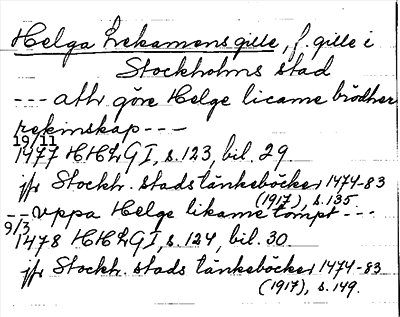 Helga Lekamens gille, f. gille i
Stockholms stad
--- atlr göre Helge licame brödher
rekinskap ---
19/11
1477 HHLG I, s. 123, bil. 29.
jfr Stockh. stads tänkeböcker 1474-83
(1917), s. 135.
-- uppa Helge likame tompt ---
9/3
1478 HHLG I, s. 124, bil. 30.
jfr Stockh. stads tänkeböcker 1474-83
(1917), s. 149.